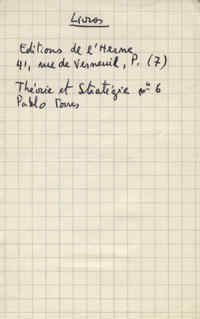 Livros
Editions de l'Herne
41, rue de Verneuil, P. (7)
Théorie et Stratégie nº 6
Pablo